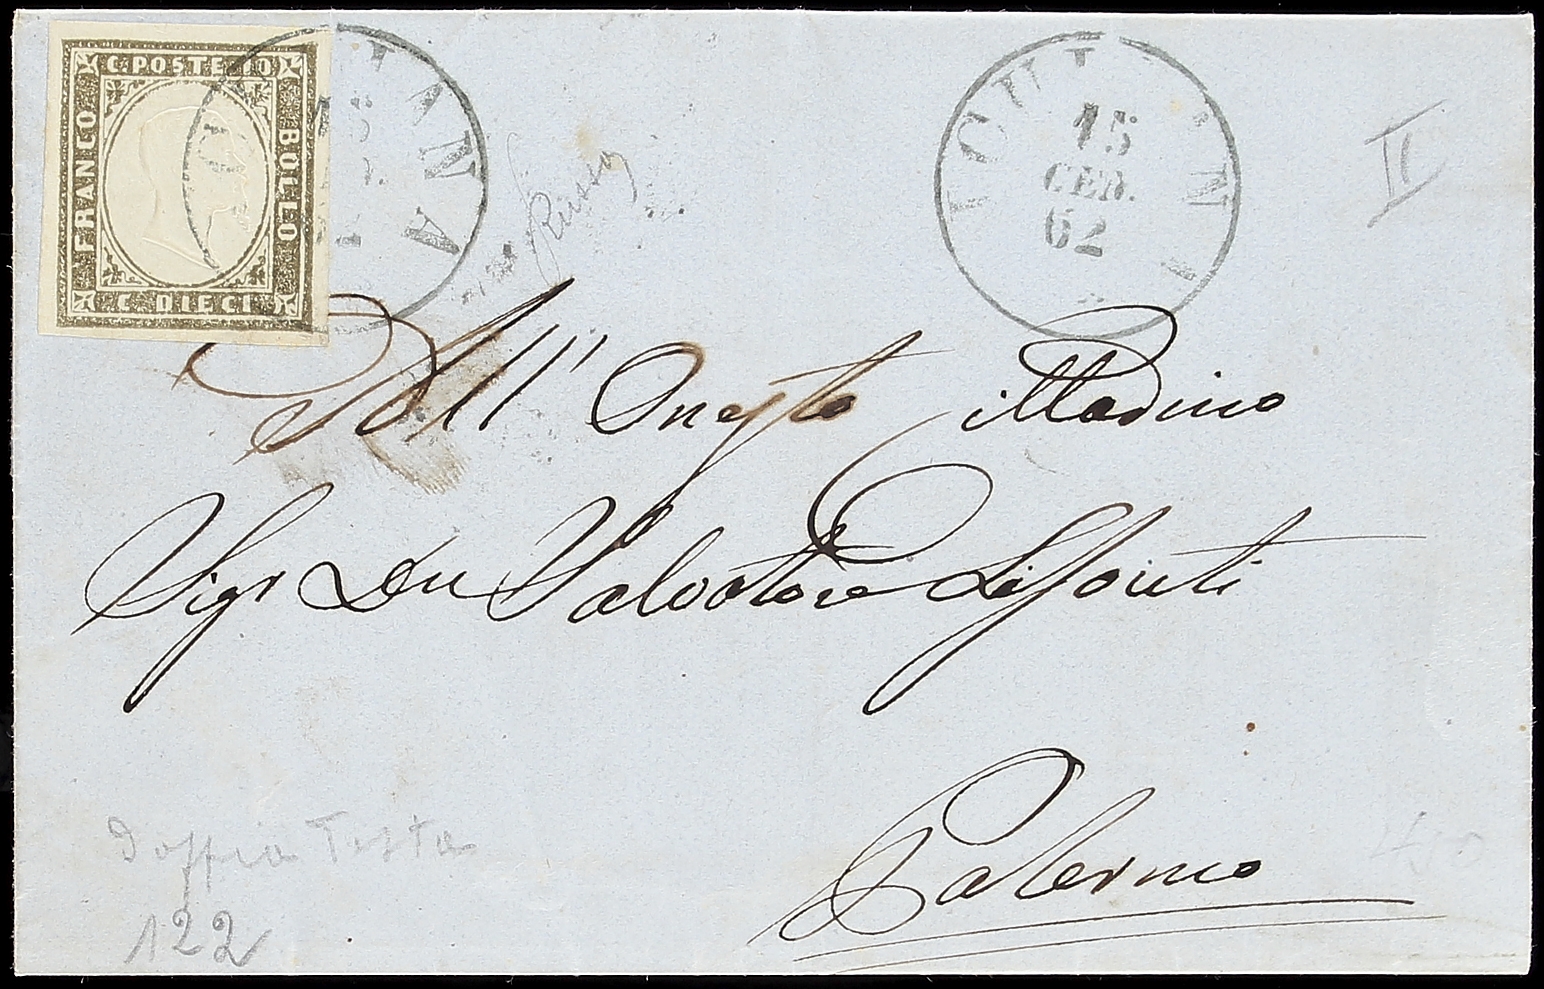 C. POSTE 10
FRANCO
BOLLO
C. DIECI
15
GEN.
62
II
Russo
All' Onesto Cittadino
Sigr Don Salvatore
Palermo
Doppia Testa
122
450